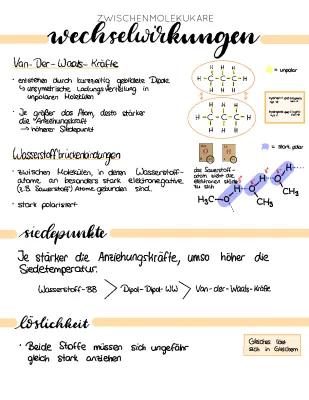 ZWISCHENMOLEKULARE
wechselwirkungen
Van-Der-Waals-Kräfte
· entstehen durch kurzzeitig gebildete Dipole
↳ unsymetrische Ladungsverteilung in
unpolaren Molekülen
· Je größer das Atom, desto stärker
die Anziehungskraft
→ höherer Siedepunkt
H H H
H-C-C-C-H
H H H
H H H
H-C-C-C-H
H H H
= unpolar
Wasserstoffbrückenbindungen
· zwischen Molekülen, in denen Wasserstoff-
atome an besonders stark elektronegative
(z.B. Sauerstoff) Atome gebunden sind.
· stark polarisiert
O
H
= stark polar
das Sauerstoff-
atom zieht die
elektronen stärker
zu sich
H₃C-O
H
O
CH₃
H
O
CH₃
siedepunkte
Je stärker die Anziehungskräfte, umso höher die
Siedetemperatur.
Wasserstoff-BB > Dipol-Dipol-WW > Van-der-Waals-Kräfte
löslichkeit
· Beide Stoffe müssen sich ungefähr
gleich stark anziehen
Gleiches löst
sich in Gleichem